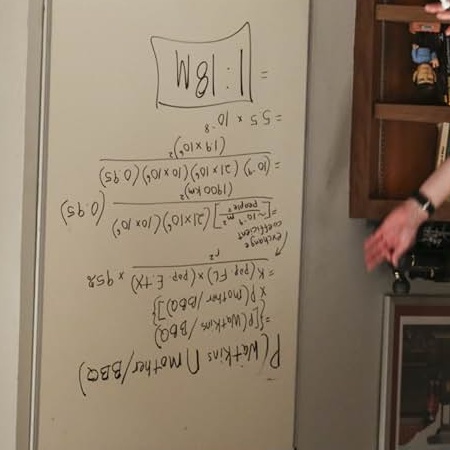 P(Watkins ∩ Mother/BBQ)
={[P(Watkins/BBQ)
x P(Mother/BBQ)]}
= K (pop. FL) x (pop E. TX) x 95%
r²
exchange
coefficient
=[~10⁻⁹ m²/people²] (21x10⁶)(10x10⁶) (0.95)
(1900 km)²
= (10⁻⁹)(21x10⁶)(10x10⁶)(0.95)
(1.9x10⁶)²
= 5.5 x 10⁻⁸
= 1:18M